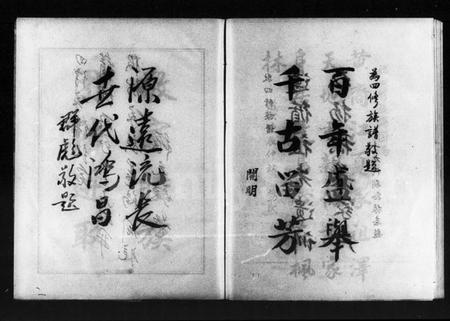 為四修族譜敬題
百年盛舉
千古留芳
開明
源遠流長
世代鴻昌
群彪敬題